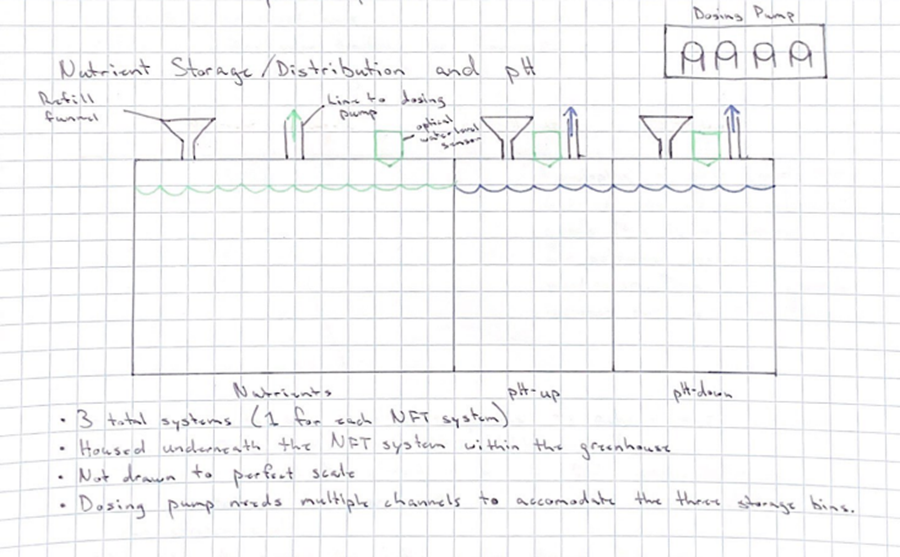 Dosing Pump
Nutrient Storage/Distribution and pH
Refill
funnel
Line to dosing
pump
optical
water level
sensor
Nutrients
pH-up
pH-down
• 3 total systems (1 for each NFT system)
• Housed underneath the NFT system within the greenhouse
• Not drawn to perfect scale
• Dosing pump needs multiple channels to accomodate the three storage bins.